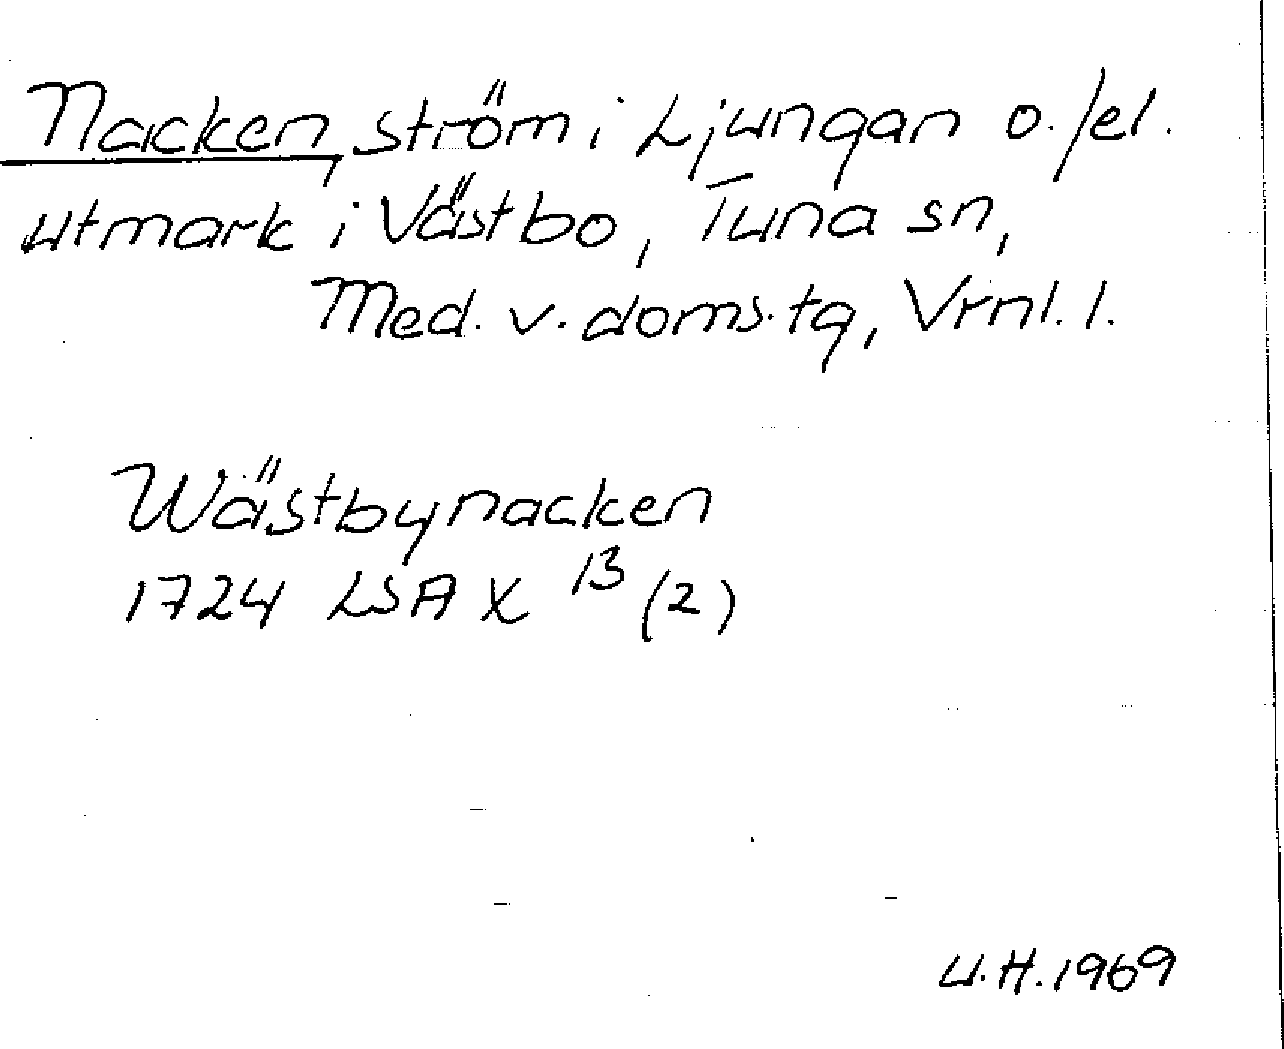 Nacken, ström i Ljungan o./el.
utmark i Västbo, Tuna sn,
Med. v. doms.tg, Vrnl. l.
Wästbynacken
1724 LSA X 13 (2)
U.H. 1969